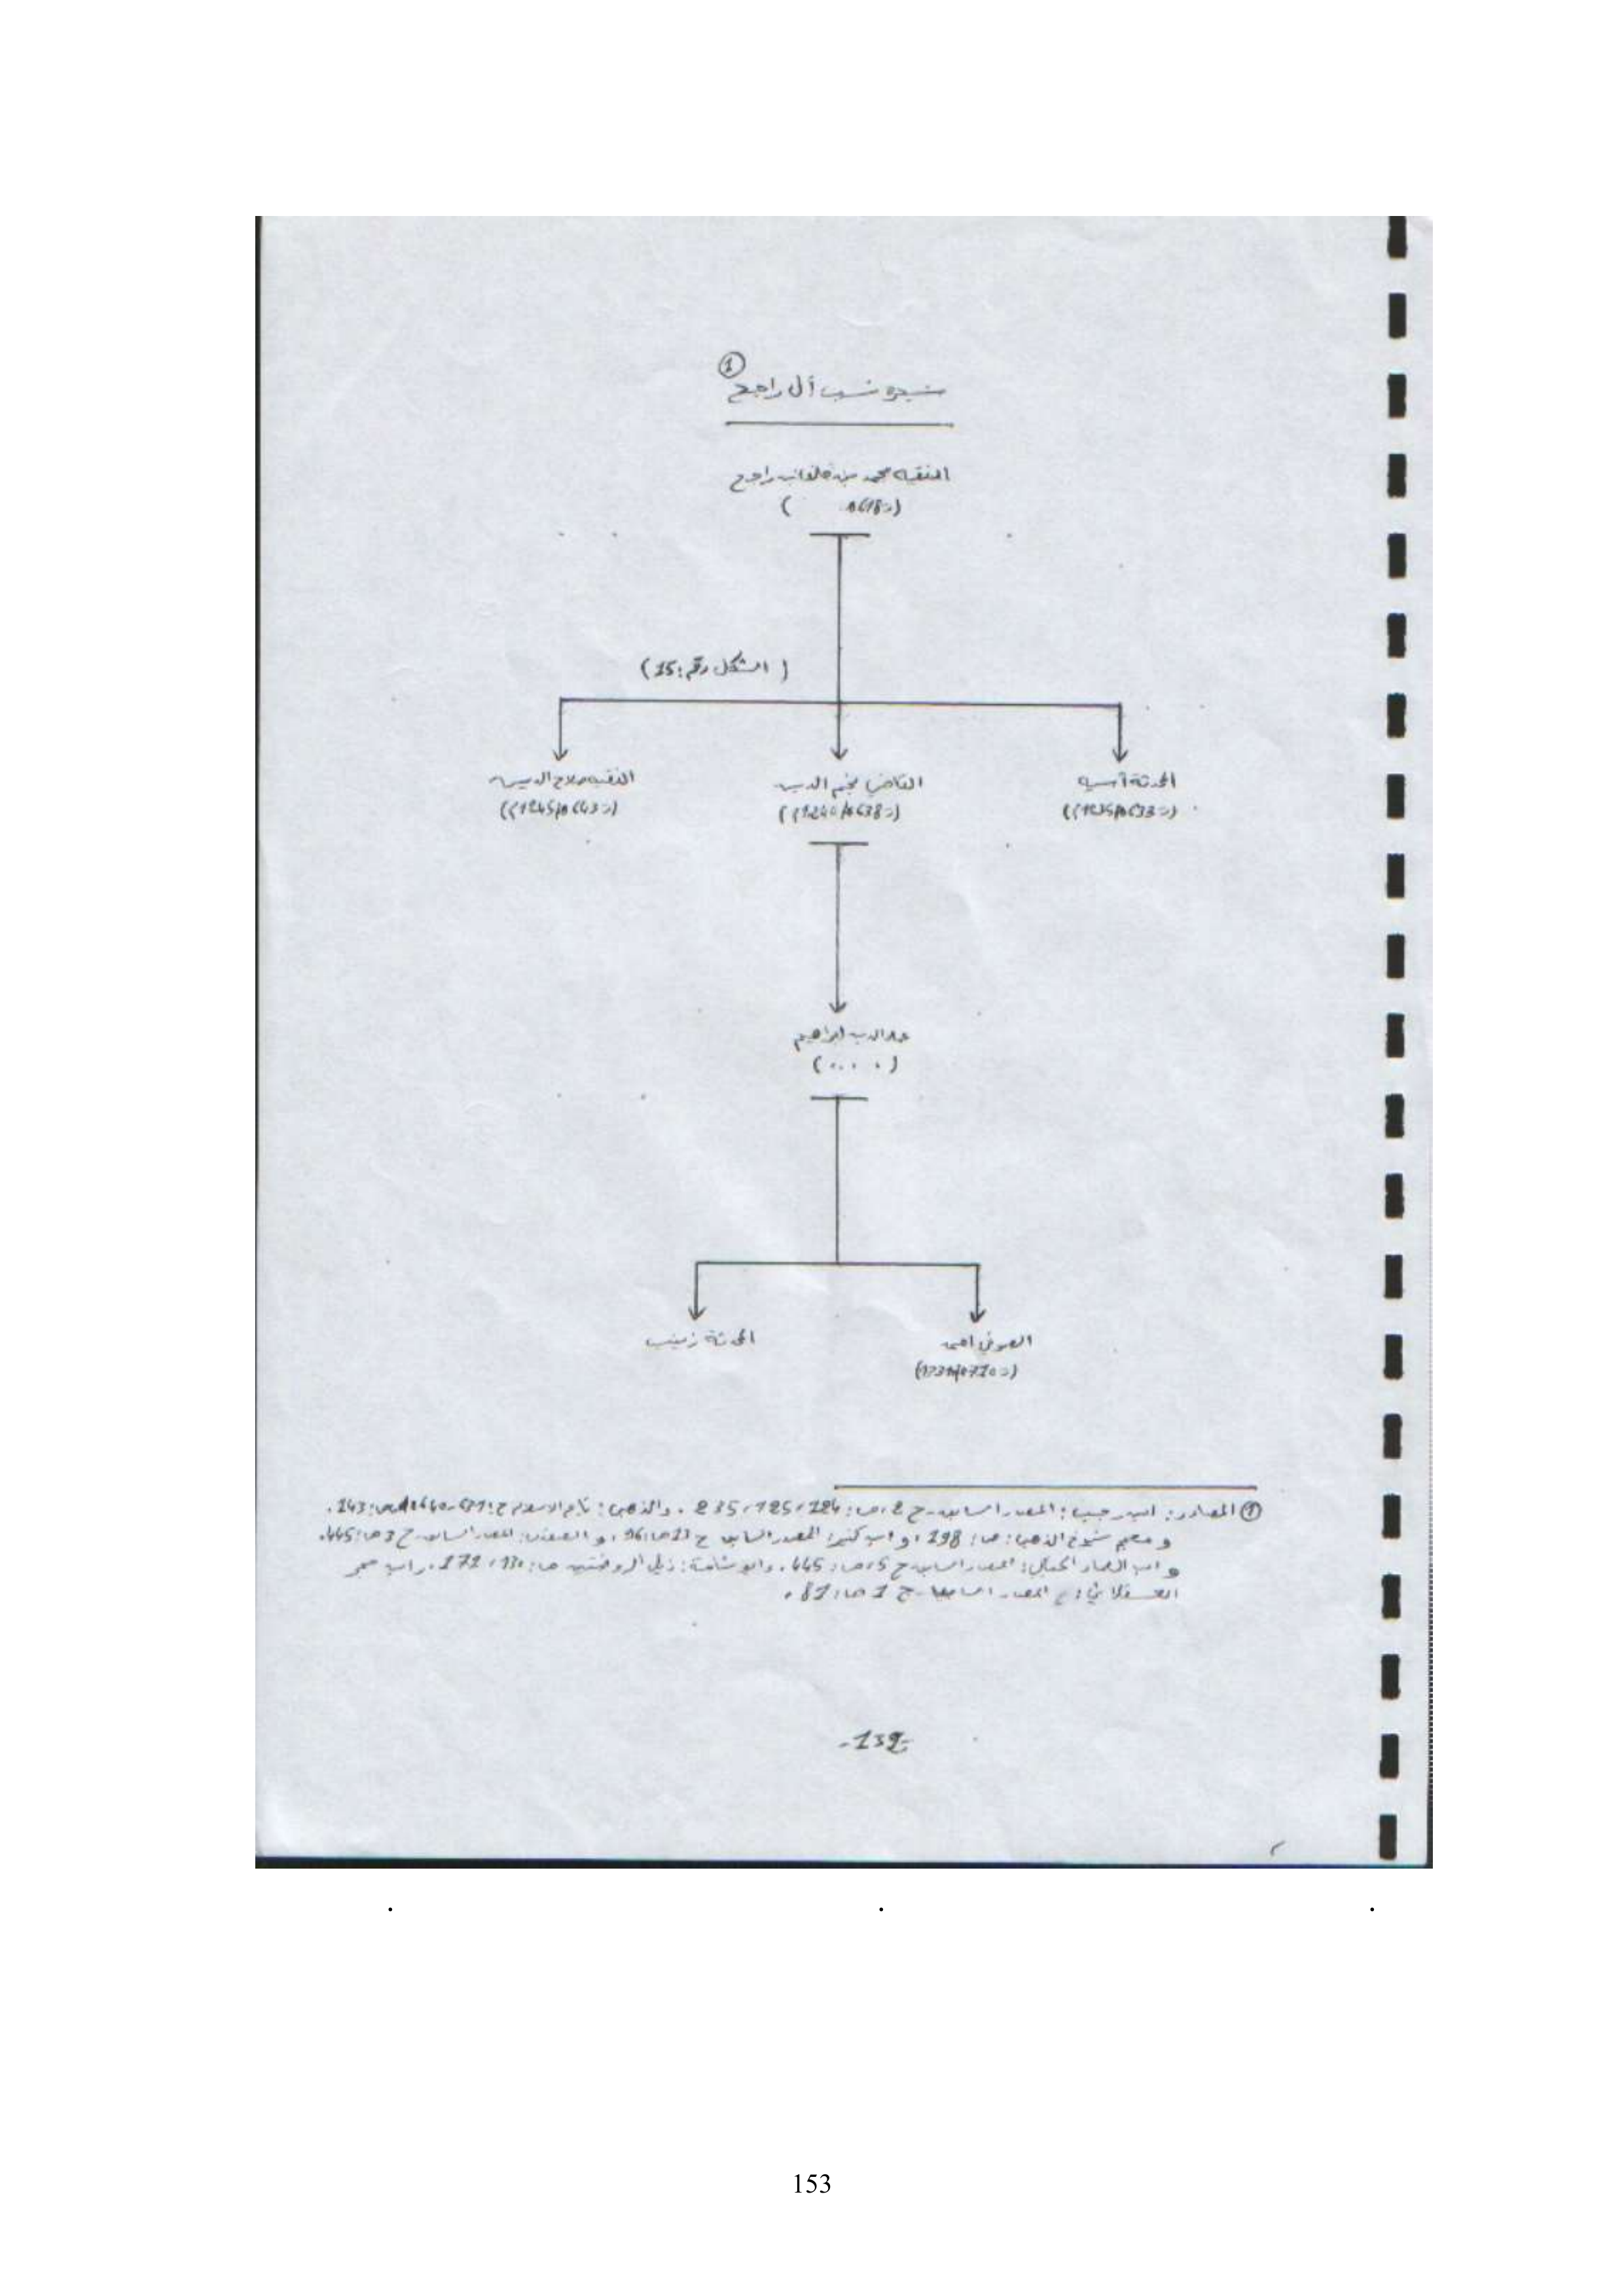 ①
شجرة نسب آل راجح
الفقيه محمد بن خلف بن راجح
(ت618هـ )
(الشكل رقم: 15)
المحدثة آسيه
(ت633هـ/1235م)
القاضي نجم الدين
(ت638هـ/1240م)
الفقيه صلاح الدين
(ت643هـ/1245م)
عماد الدين ابراهيم
(....)
الصوفي احمد
(ت710هـ/
المحدثة زينب
① المصادر: ابن رجب: المصدر السابق ج2، ص: 124، 125، 235. والذهبي: تاريخ الاسلام ج: 631-640هـ ص: 143.
و معجم شيوخ الذهبي: ص: 198، و ابن كثير: المصدر السابق ج 13 ص: 96، و الصفدي: المصدر السابق ج 3 ص: 445.
و ابن العماد الحنبلي: المصدر السابق ج 5، ص: 445. وابو شامة: ذيل الروضتين ص: 130، 171. وابن حجر
العسقلاني: المصدر السابق ج 1 ص: 81.
-139-
153